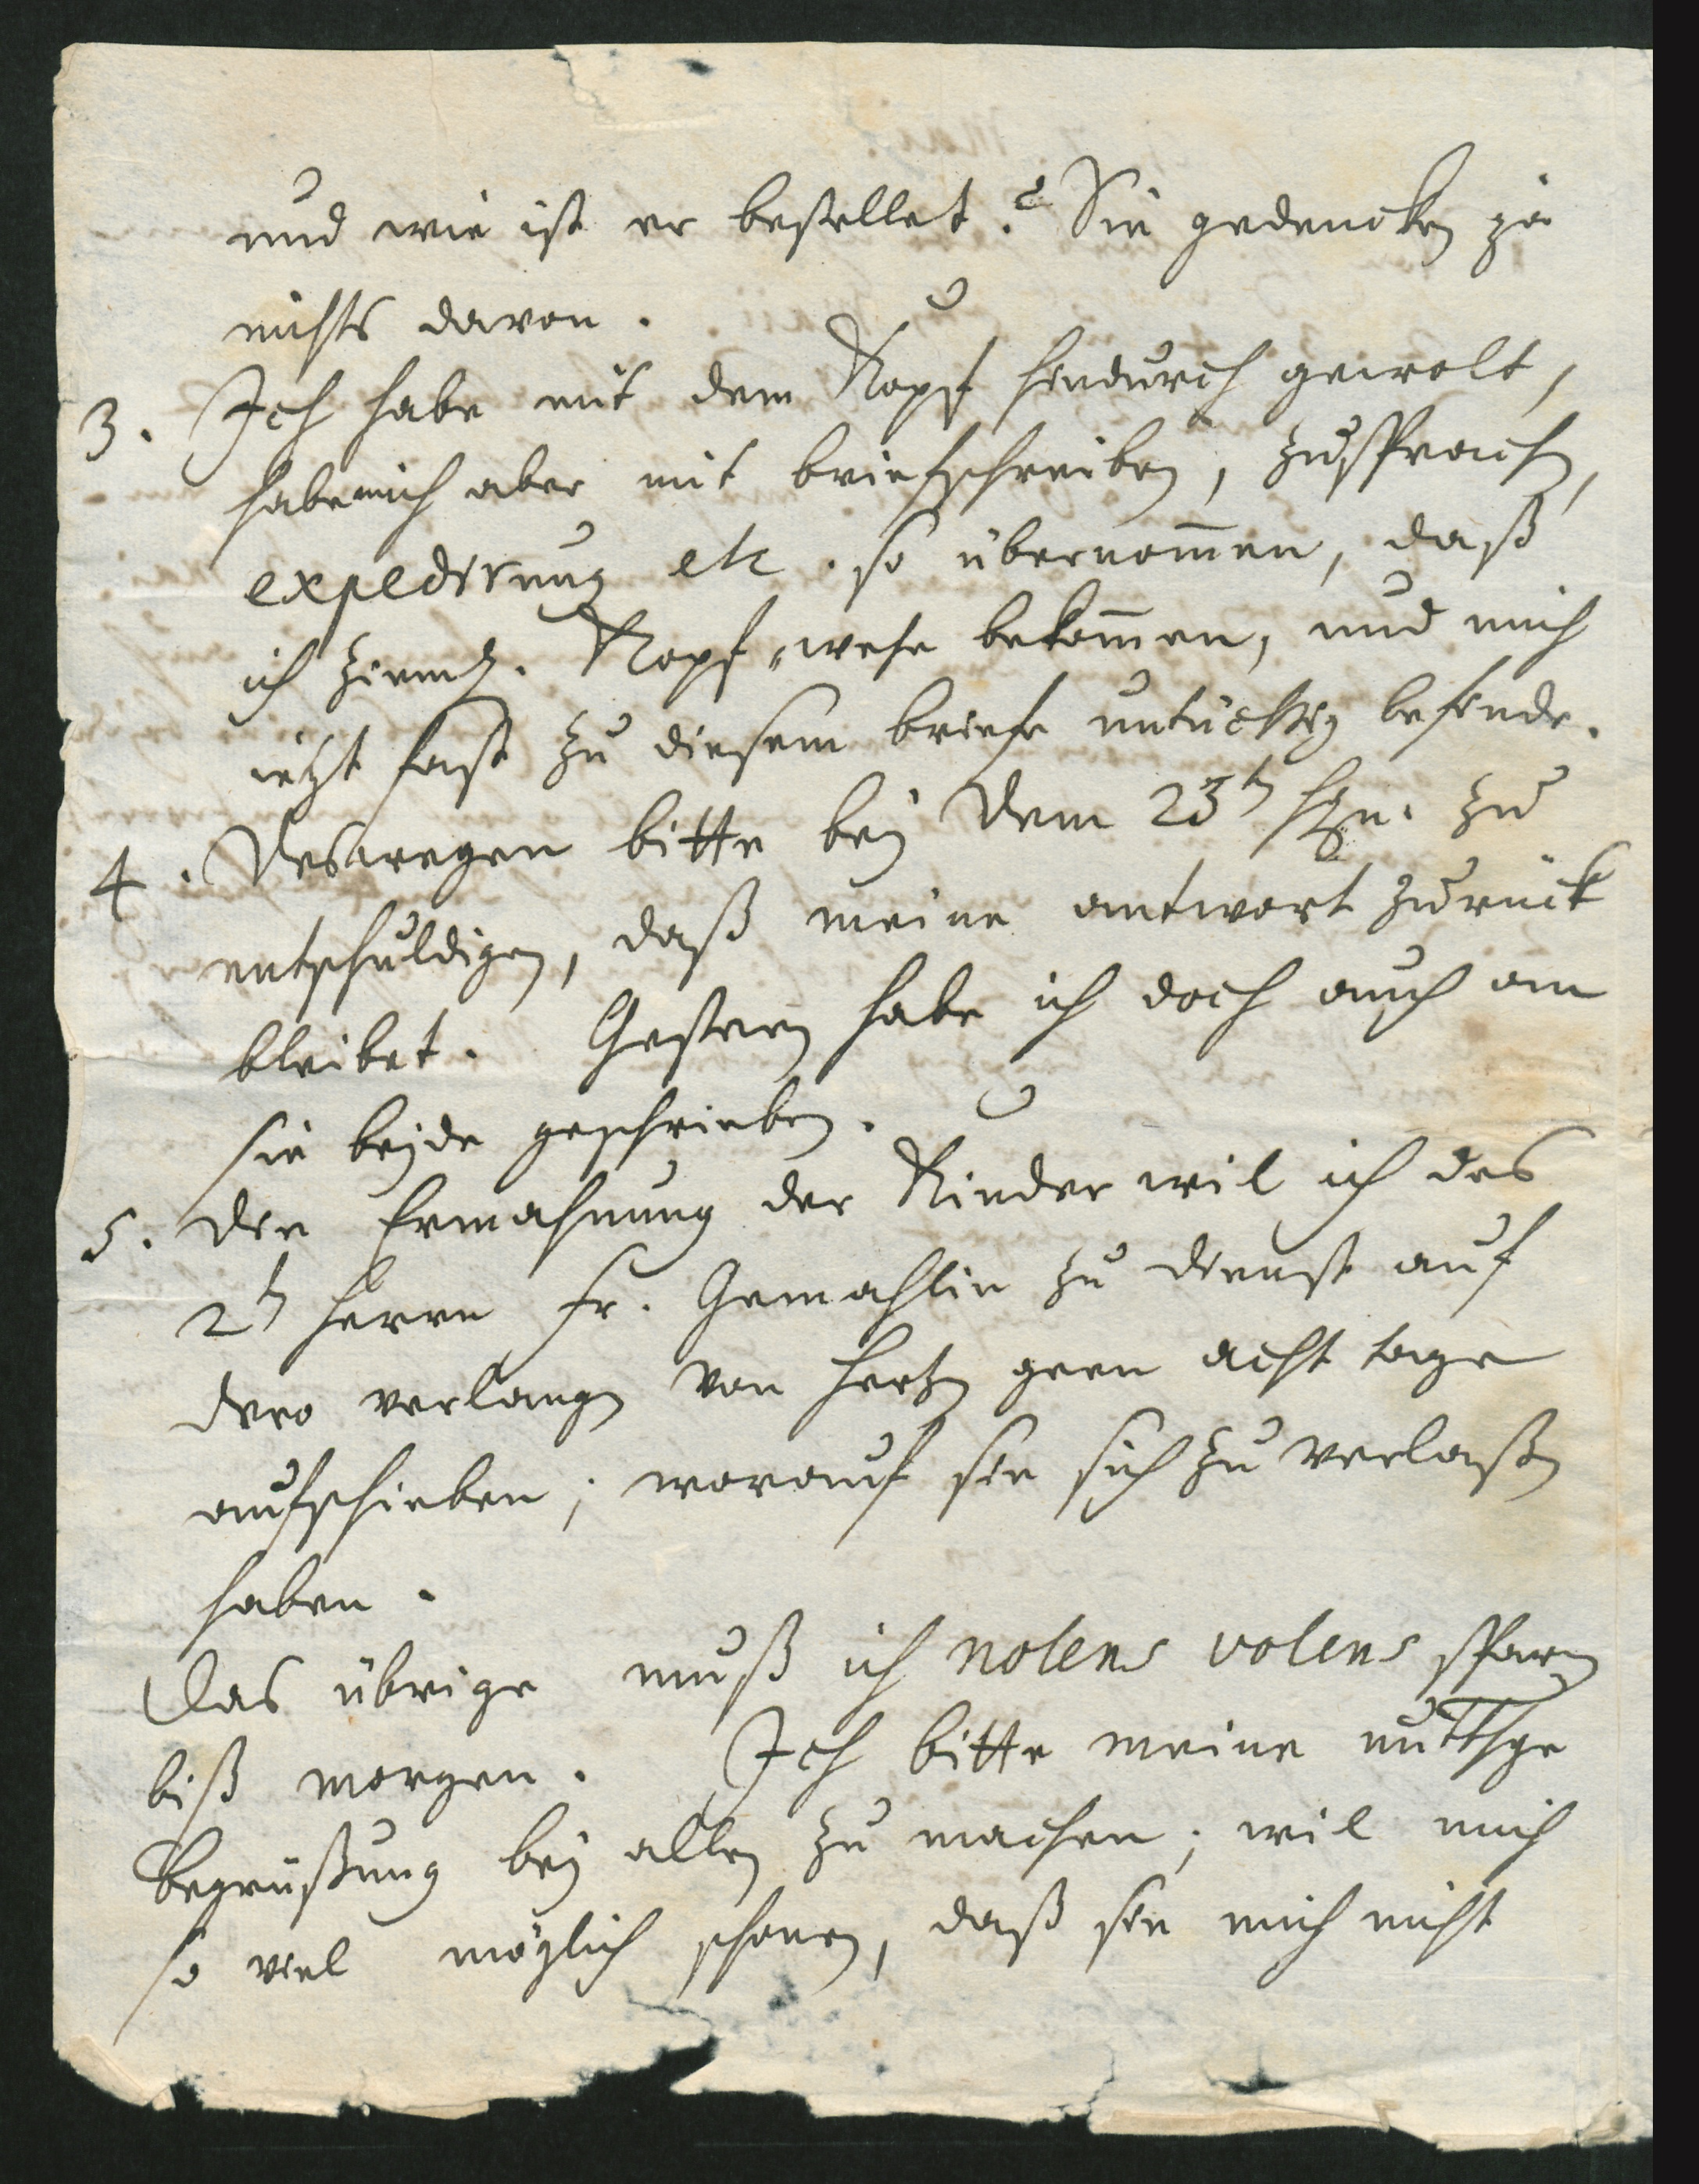 und wie ist er bestellet? Sie gedencken ja
nichts davon.
3. Ich habe mit dem Kopf hindurch gewolt,
habe mich aber mit briefschreiben, zusprach,
expedirung etc. so übernom̄en, daß
ich ziemlʒ. Kopf-wehe bekom̄en, und mich
ietzt fast zu diesem briefe untüchtig befinde.
4. Deswegen bitte beÿ dem 23ten zu
entschuldigen, daß meine antwort zurück
bleibet. Gestern habe ich doch auch an
sie beÿde geschrieben.
5. Die Ermahnung der Kinder wil ich des
2ten Herrn Fr. Gemahlin zu dienst auf
dero verlangen von hertzen gern acht tage
aufschieben; worauf sie sich zu verlaßen
haben.
Das übrige muß ich nolens volens sparen
biß morgen. Ich bitte meine
begrüßung beÿ allen zu machen; wil mich
so viel möglich schonen, daß sie mich nicht